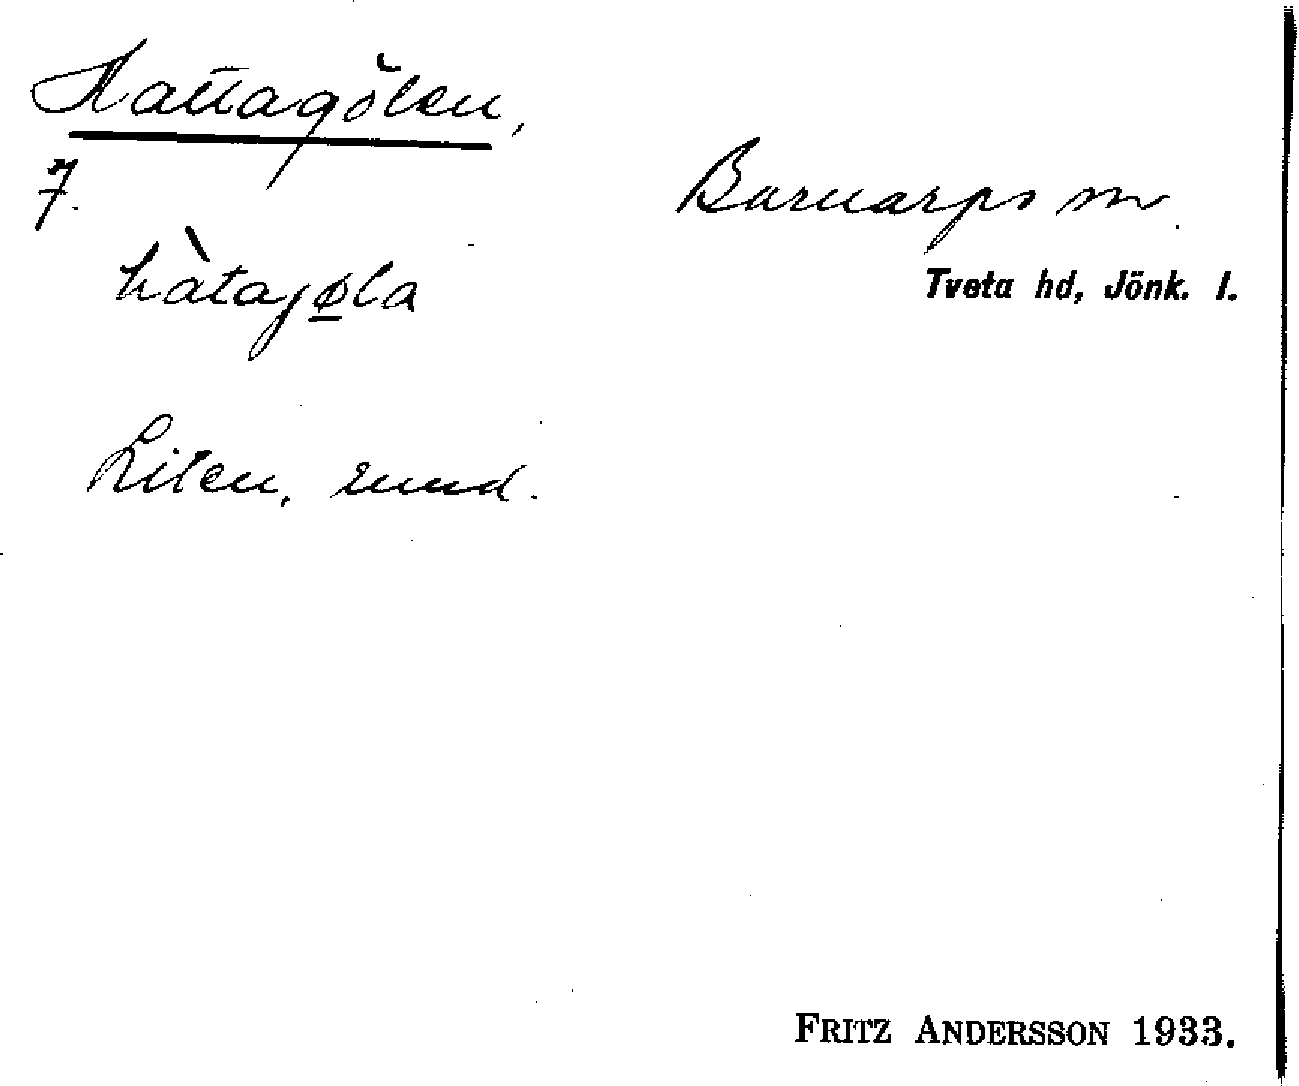 Hattagölen,
7.
Barnarps sn.
hàtajøla
Tveta hd, Jönk. l.
Liten, rund.
FRITZ ANDERSSON 1933.